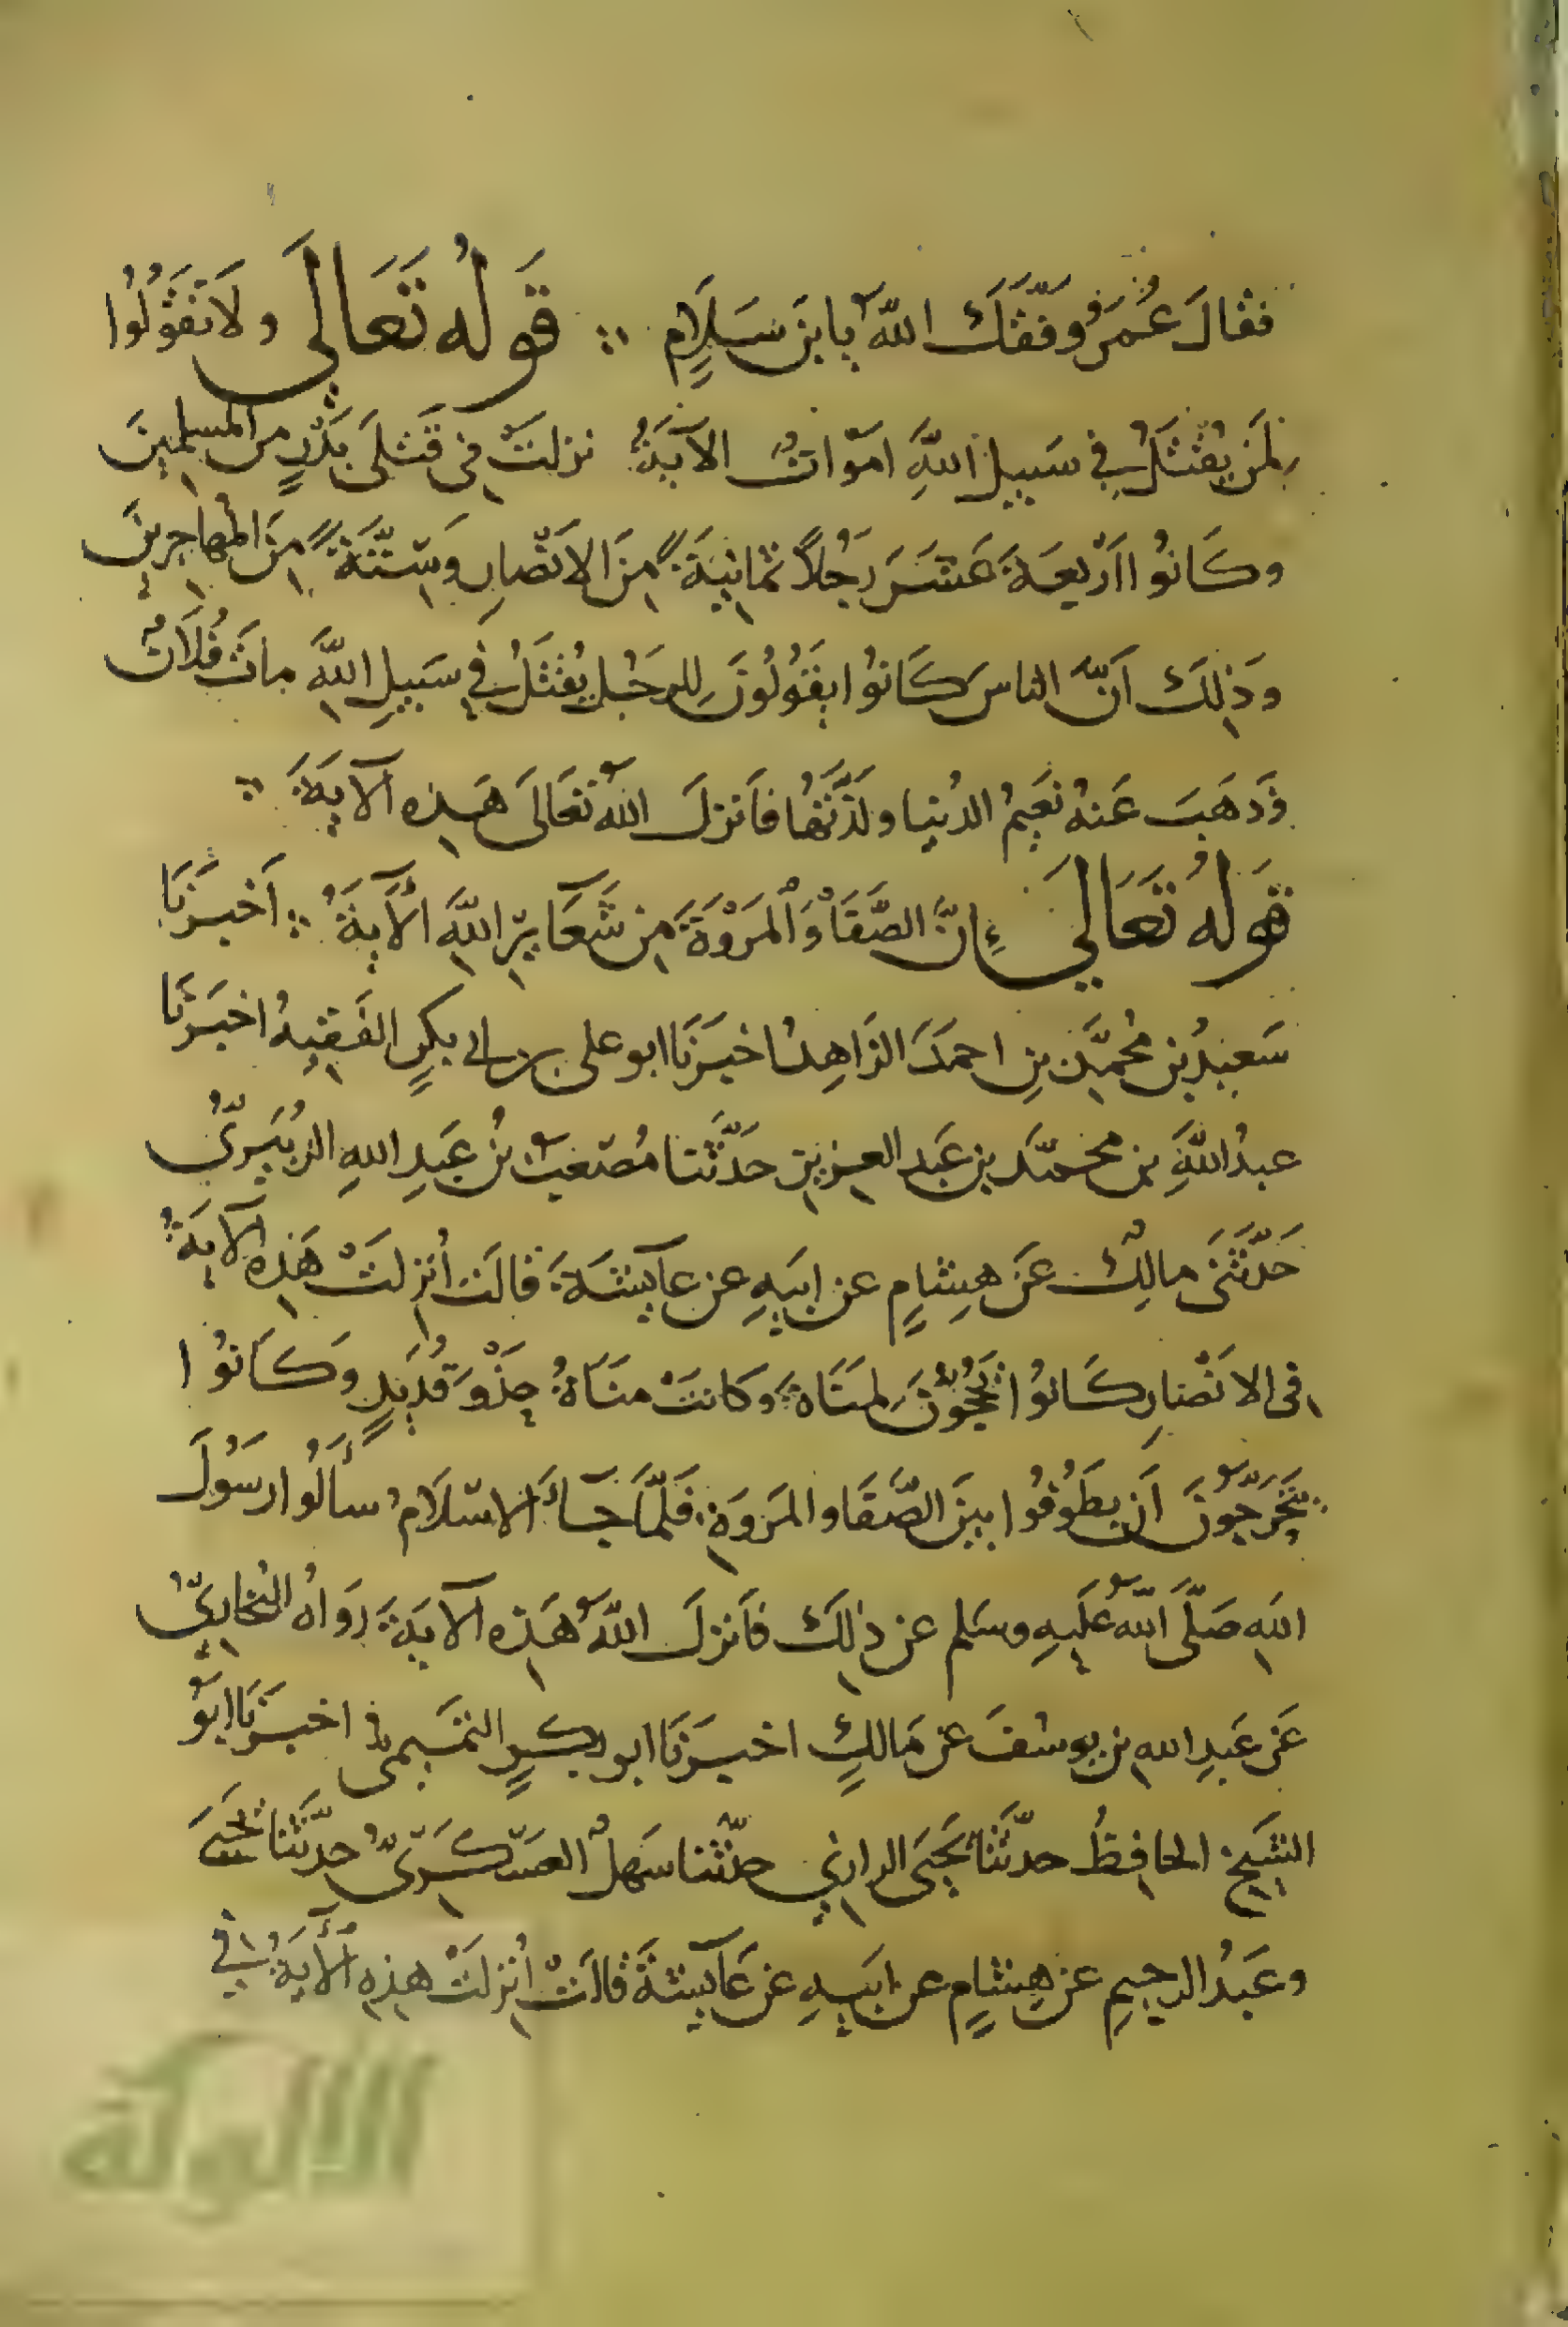 فقَالَ عُمَرُ وفّقَكَ اللهُ يا بنَ سَلَامٍ ∴ قَولُه تَعَالَى ولَا تَقُولُوا
لِمَن يُقتَلُ في سَبيلِ اللَّهِ امْوَاتٌ الآيَةُ نزلَتْ في قَتلَى بَدْرٍ من المسلمينَ
وكَانُوا اَرْبعَةَ عَشَرَ رَجُلاً ثمانِيَةً مِنَ الانْصارِ وَستّةً مِنَ المُهاجرينَ
وَذلِكَ اَنَّ الناسَ كَانُوا يقَولُونَ لِلرجُلِ يُقتَلُ في سَبيلِ اللَّهِ ماتَ فُلَانٌ
وَذهَبَ عَنهُ نَعيمُ الدُنيا ولَذّتُها فاَنزلَ اللهُ تعَالَى هَذِه الآيَةَ ∴
قَولُه تَعَالَى اِنَّ الصَّفَا وَالْمَرْوَةَ مِن شَعَآئِرِ اللَّهِ الآيَةُ ∴ اَخبرَنَا
سَعيدُ بنُ مُحمَّدِ بنِ احمَدَ الزَاهِدُ اخبرَنَا ابو على بن ابى بكرٍ الفَقيهُ اخبَرنَا
عبدُ اللَّهِ بن محمّد بن عَبد العزيزِ حَدَّثَنا مُصْعَبُ بنُ عَبدِ اللهِ الزُبَيريُّ
حَدَّثَنَى مالِكٌ عَن هِشامٍ عن ابيَهِ عن عآيشَةَ قالَت اُنزِلَتْ هَذِه الآيَةُ
فى الانْصَارِ كَانُوا يَحُجّونَ لِمَنَاةَ وكانتْ منَاةُ حَذْوَ قُدَيدٍ وكَانُوا
يتحَرّجُونَ اَن يطَوفُوا بينَ الصَّفَا والمَروَةِ فَلمّا جآءَ الاسْلَامُ سأَلُوا رسُولَ
اللهِ صَلَّى اللهُ عَلَيهِ وسَلم عن ذلِكَ فاَنزلَ اللهُ هَذِه الآيَةَ رَوَاهُ البُخاريُّ
عَن عَبدِ اللهِ بن يوسُفَ عَن مَالكٍ اخبرَنَا ابو بكرٍ التمَيمى اخبرَنَا ابَو
الشَيخِ الحافِظُ حدَّثَنَا يَحيَى الرازي حدّثَنا سَهلٌ العسْكَريُّ حدّثَنا يَحيَى
وعَبدُ الرحيمِ عَن هِشامٍ عن ابيَهِ عَن عَآيشةَ قالَتْ اُنزلَتْ هذِه الآيَةُ في
الألوكة